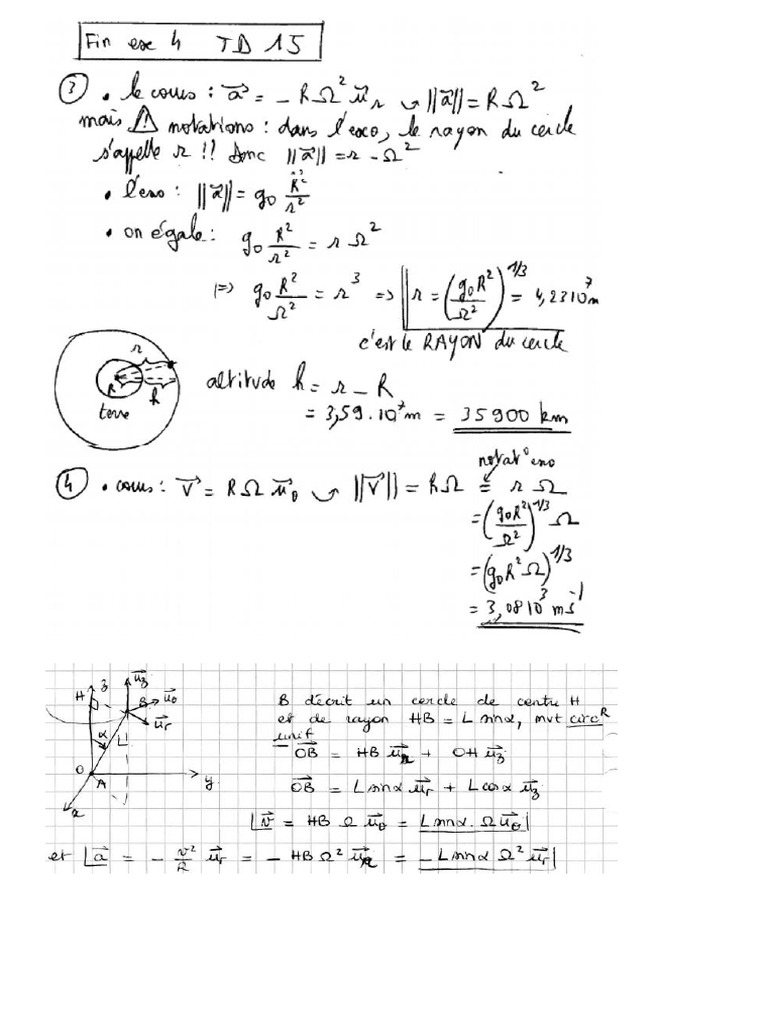 Fin exo 4 TD 15
③ • le cours : a⃗ = - RΩ² u⃗r ↝ ||a⃗|| = RΩ²
mais ⚠ notations : dans l'exo, le rayon du cercle
s'appelle r !! Donc ||a⃗|| = r - Ω²
• l'exo : ||a⃗|| = g₀ R²/r²
• on égale : g₀ R²/r² = r Ω²
|=> g₀ R²/Ω² = r³ => || r = (g₀R²/Ω²)^1/3 = 4,23 10⁷ m
c'est le RAYON du cercle
r
R
h
terre
altitude h = r - R
= 3,59 . 10⁷ m = 35 900 km
notat° exo
④ • cours : V⃗ = RΩ u⃗θ ↝ ||V⃗|| = RΩ = r Ω
= (g₀R²/Ω²)^1/3 Ω
= (g₀R²Ω)^1/3
= 3,08 10³ m s⁻¹
z
H
u⃗z
B
u⃗θ
u⃗r
α
L
O
A
y
x
B décrit un cercle de centre H
et de rayon HB = L sinα, mvt circR
unif
OB⃗ = HB u⃗r + OH u⃗z
OB⃗ = L sinα u⃗r + L cosα u⃗z
v⃗ = HB Ω u⃗θ = L sinα . Ω u⃗θ
et a⃗ = - v²/R u⃗r = - HB Ω² u⃗r = - L sinα Ω² u⃗r